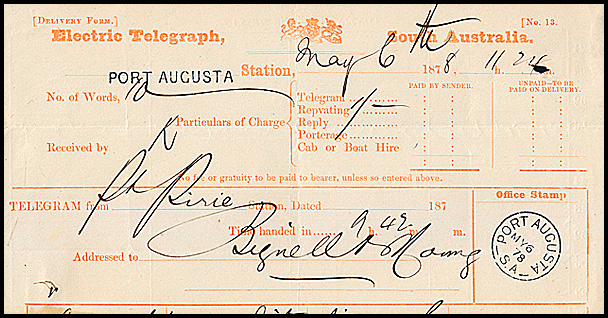 [DELIVERY FORM.] [No. 13.]
Electric Telegraph, South Australia.
PORT AUGUSTA Station, May 6th 1878, 11 h. 24
No. of Words, 10
Particulars of Charge
Telegram 1/-
Repeating
Reply
Porterage
Cab or Boat Hire
PAID BY SENDER.
UNPAID—TO BE PAID ON DELIVERY.
Received by K
No fee or gratuity to be paid to bearer, unless so entered above.
TELEGRAM from Pt Pirie Station, Dated 187
Time handed in 9 h. 42 m. m.
Addressed to Bignell & Young
Office Stamp
PORT AUGUSTA
MY 6
78
S.A.